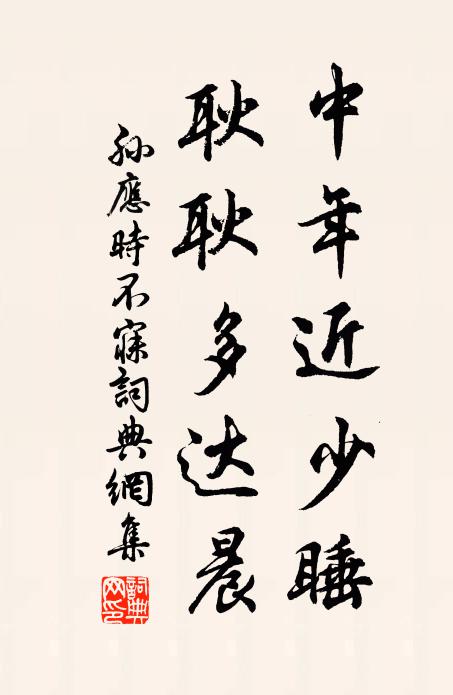 中年近少睡
耿耿多达晨
孙應時不寐詞典網集
詞典网印